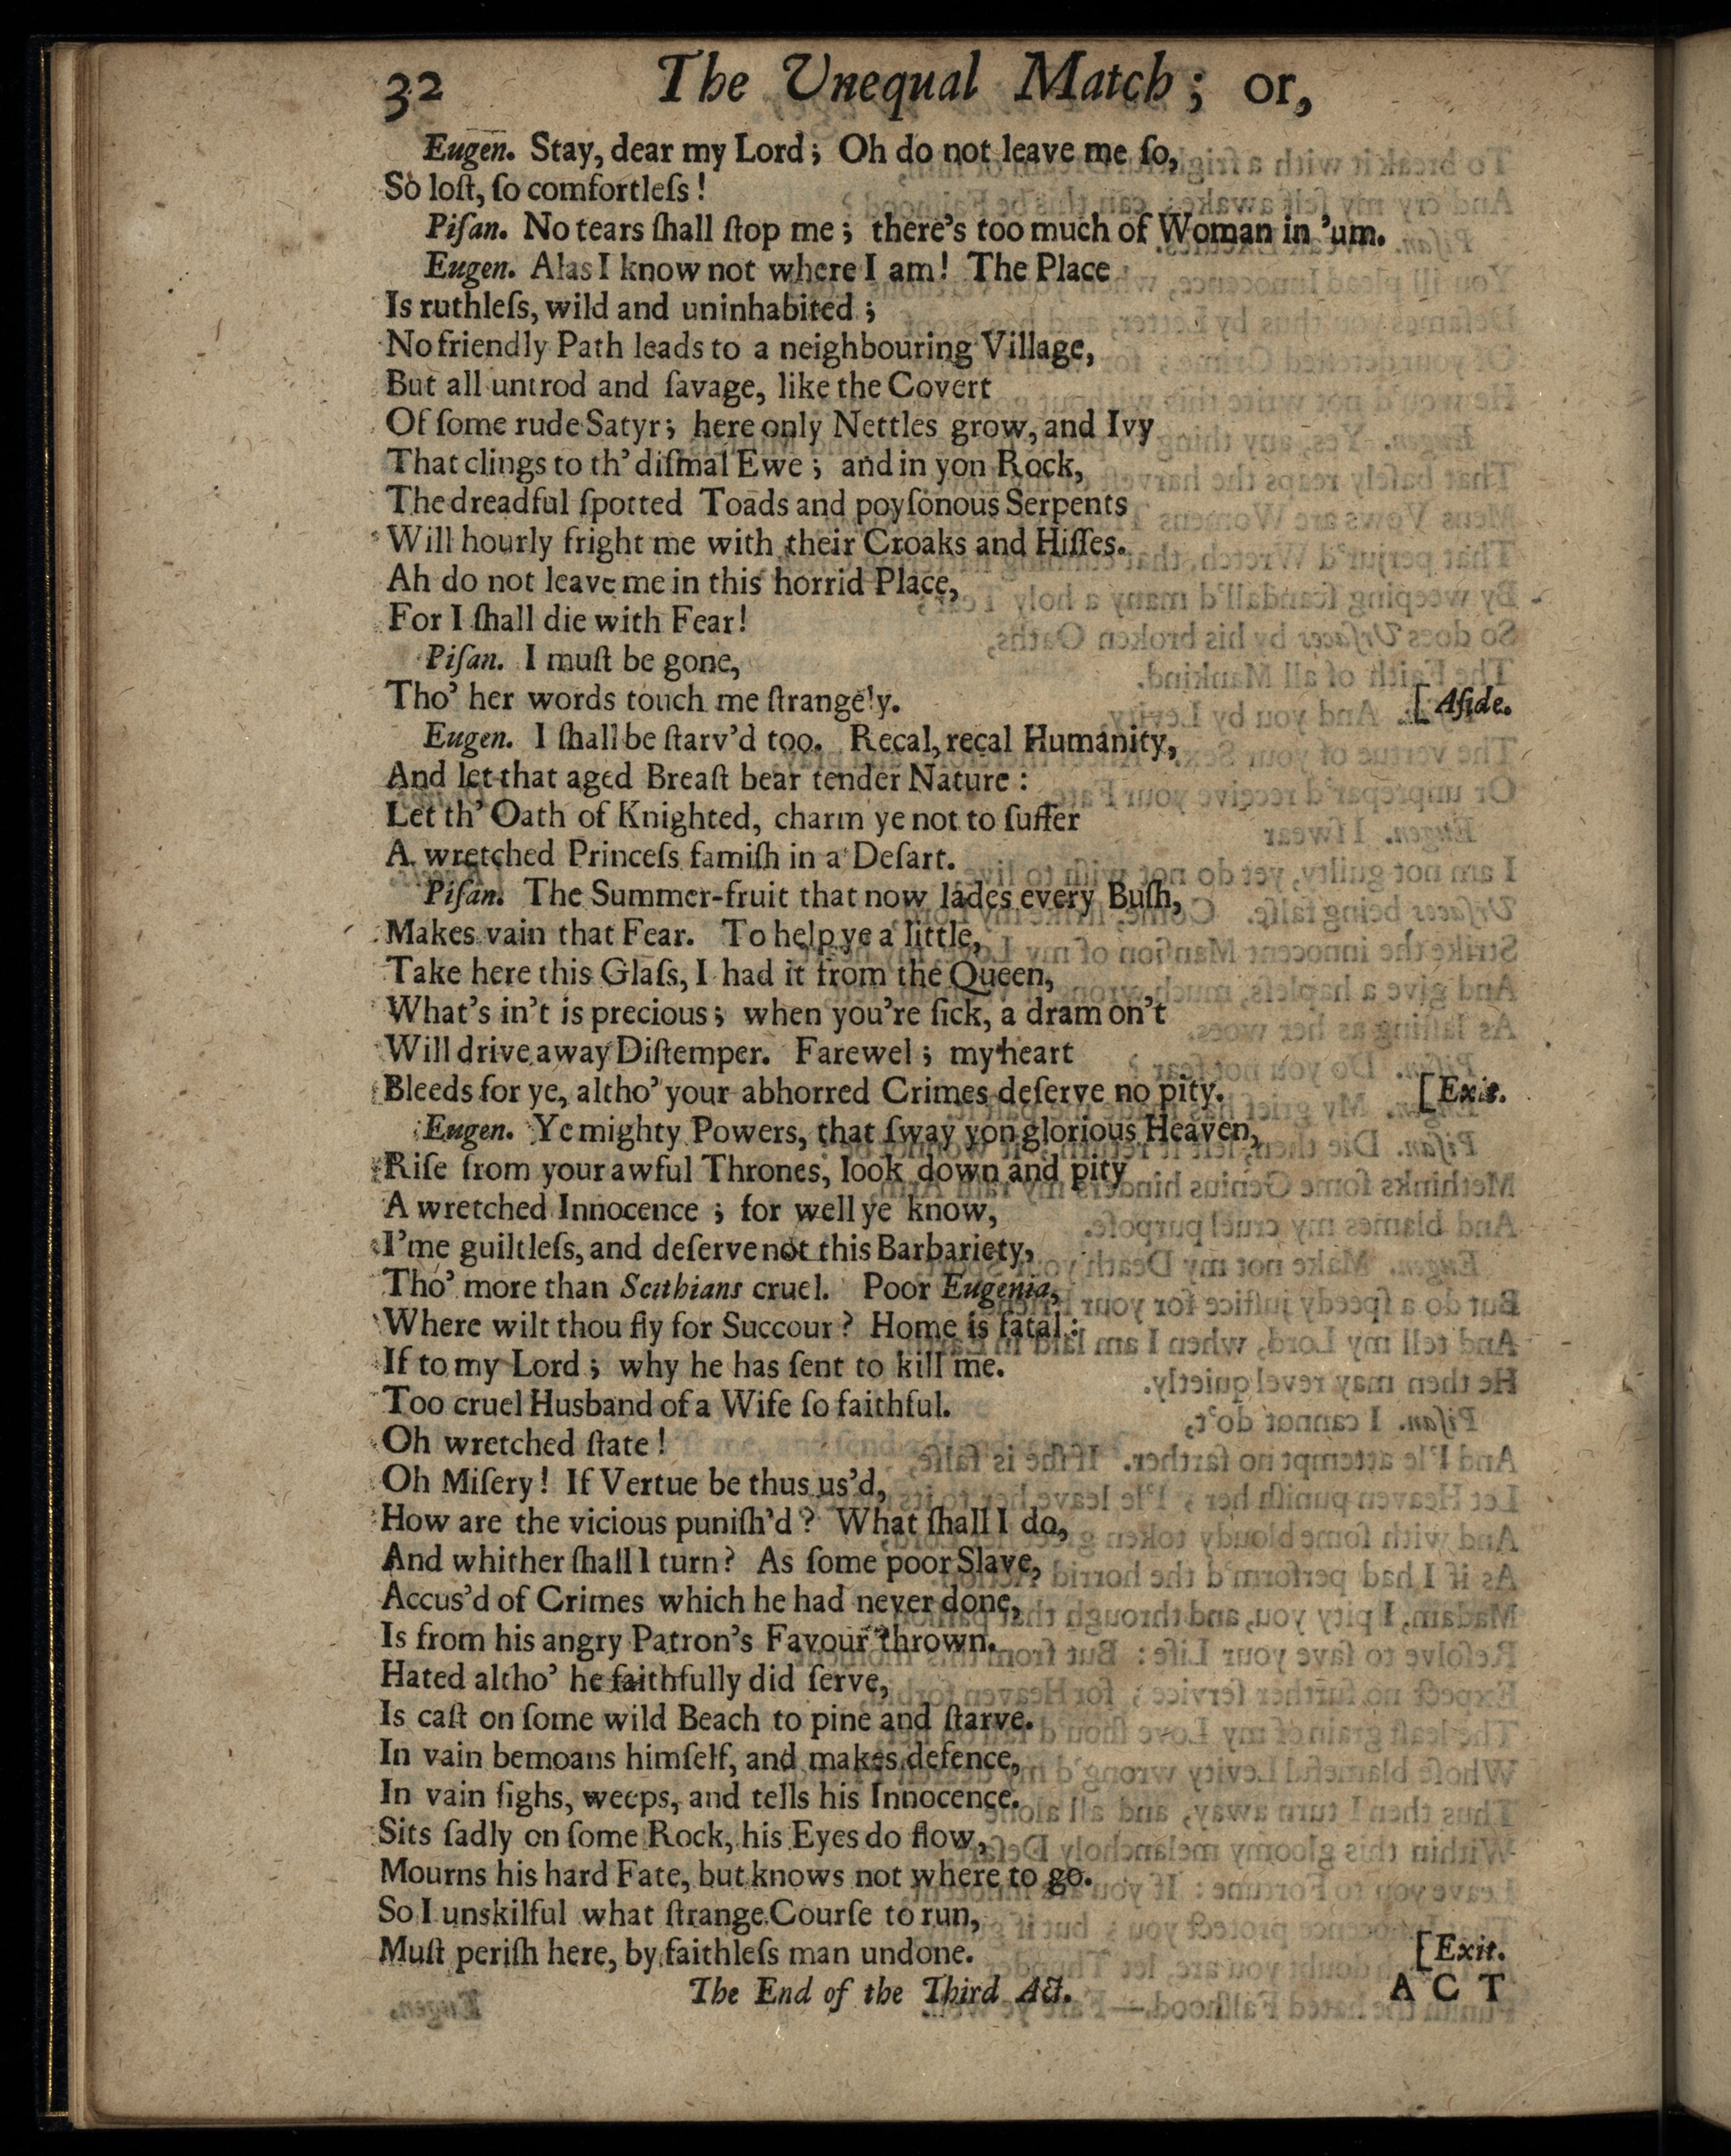 32 The Unequal Match; or,
Eugen. Stay, dear my Lord; Oh do not leave me ſo,
So loſt, ſo comfortleſs!
Piſan. No tears ſhall ſtop me; there's too much of Woman in 'um.
Eugen. Alas I know not where I am! The Place
Is ruthleſs, wild and uninhabited;
No friendly Path leads to a neighbouring Village,
But all untrod and ſavage, like the Covert
Of ſome rude Satyr; here only Nettles grow, and Ivy
That clings to th' diſmal Ewe; and in yon Rock,
The dreadful ſpotted Toads and poyſonous Serpents
Will hourly fright me with their Croaks and Hiſſes.
Ah do not leave me in this horrid Place,
For I ſhall die with Fear!
Piſan. I muſt be gone,
Tho' her words touch me ſtrangely. [Aſide.
Eugen. I ſhall be ſtarv'd too. Recal, recal Humanity,
And let that aged Breaſt bear tender Nature:
Let th' Oath of Knighted, charm ye not to ſuffer
A wretched Princeſs famiſh in a Deſart.
Piſan. The Summer-fruit that now lades every Buſh,
Makes vain that Fear. To help ye a little,
Take here this Glaſs, I had it from the Queen,
What's in't is precious; when you're ſick, a dram on't
Will drive away Diſtemper. Farewel; my heart
Bleeds for ye, altho' your abhorred Crimes deſerve no pity. [Exit.
Eugen. Ye mighty Powers, that ſway yon glorious Heaven,
Riſe from your awful Thrones, look down and pity
A wretched Innocence; for well ye know,
I'me guiltleſs, and deſerve not this Barbariety,
Tho' more than Scithians cruel. Poor Eugenia,
Where wilt thou fly for Succour? Home is fatal:
If to my Lord; why he has ſent to kill me.
Too cruel Husband of a Wife ſo faithful.
Oh wretched ſtate!
Oh Miſery! If Vertue be thus us'd,
How are the vicious puniſh'd? What ſhall I do,
And whither ſhall I turn? As ſome poor Slave,
Accus'd of Crimes which he had never done,
Is from his angry Patron's Favour thrown.
Hated altho' he faithfully did ſerve,
Is caſt on ſome wild Beach to pine and ſtarve.
In vain bemoans himſelf, and makes defence,
In vain ſighs, weeps, and tells his Innocence.
Sits ſadly on ſome Rock, his Eyes do flow,
Mourns his hard Fate, but knows not where to go.
So I unskilful what ſtrange Courſe to run,
Muſt periſh here, by faithleſs man undone. [Exit.
The End of the Third Act.
ACT